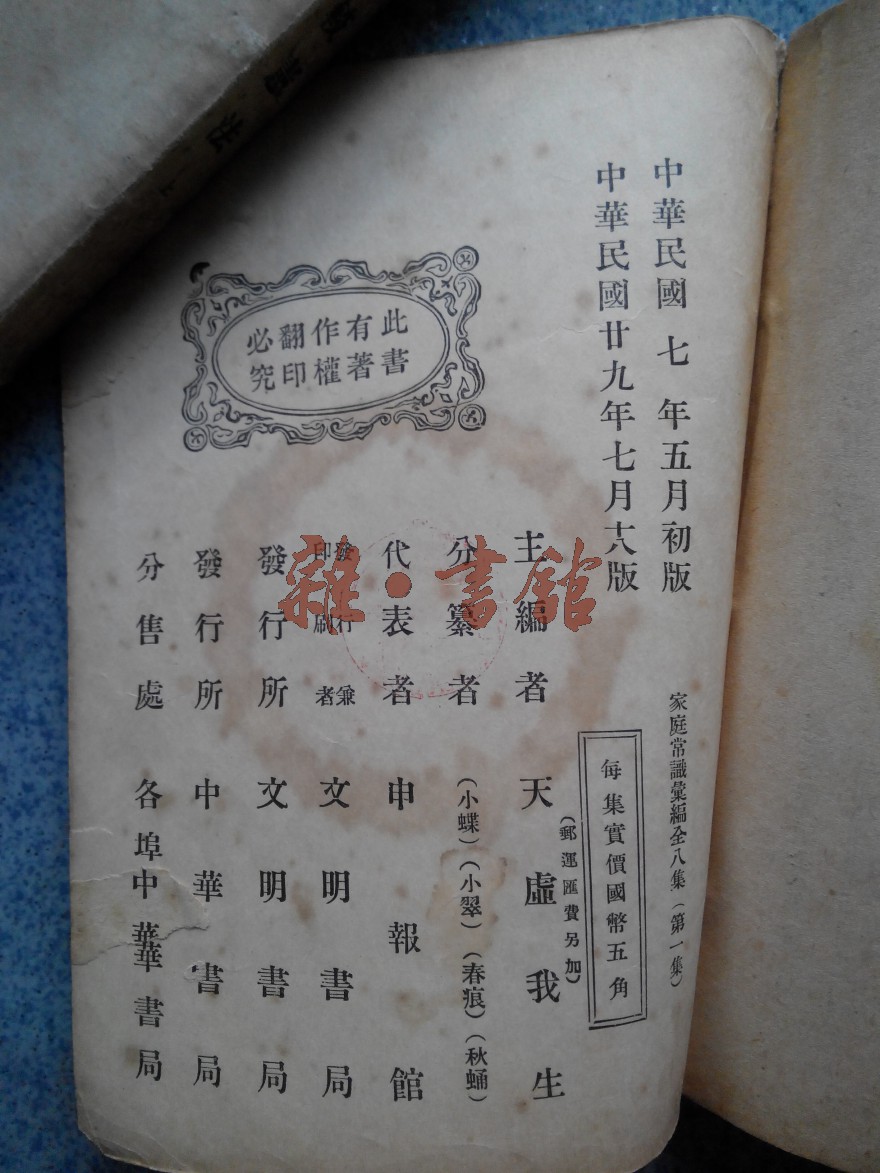 中華民國七年五月初版
中華民國廿九年七月十八版
家庭常識彙編全八集（第一集）
每集實價國幣五角
（郵運匯費另加）
主編者 天虛我生
分纂者 （小蝶）（小翠）（春痕）（秋蛹）
代表者 申報館
發行兼印刷者 文明書局
發行所 文明書局
發行所 中華書局
分售處 各埠中華書局
此書
有著
作權
翻印
必究
雜·書館